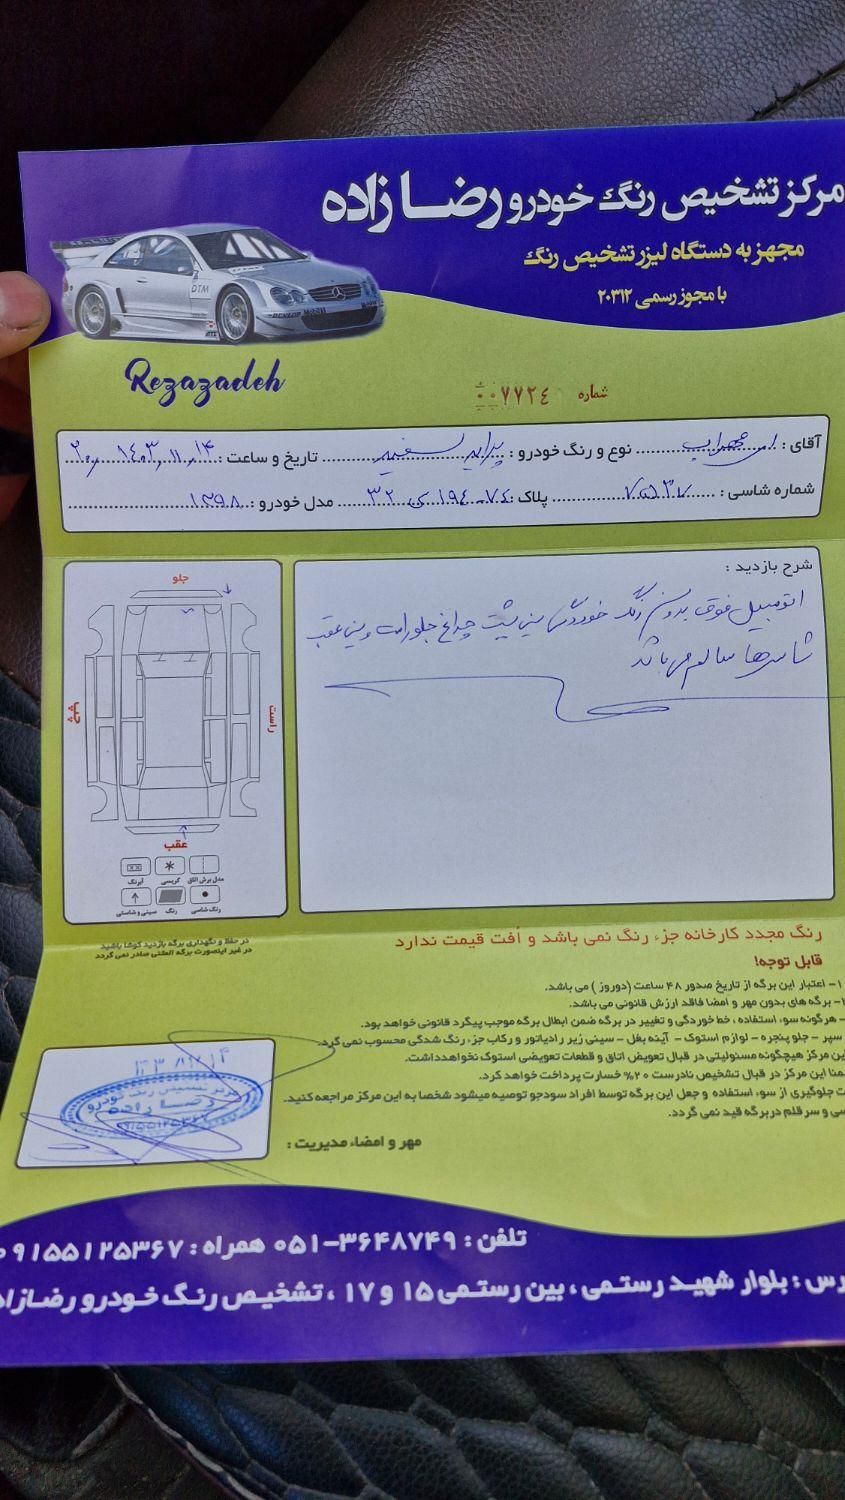 مرکز تشخیص رنگ خودرو رضا زاده
مجهز به دستگاه لیزر تشخیص رنگ
با مجوز رسمی ۲۰۳۱۲
DTM
DUNLOP Mobil
Rezazadeh
شماره ۰۰۷۷۲٤
آقای : نوع و رنگ خودرو : پراید سفید تاریخ و ساعت : ۱۴۰۳،۱۱،۱۴
شماره شاسی : پلاک : ۷۴-۱۹۴ ی ۳۲ مدل خودرو : ۱۳۹۸
جلو
چپ
راست
عقب
مدل برش اتاق
گریسی
آبرنگ
رنگ شاسی
رنگ
سینی و شاسی
شرح بازدید :
اتومبیل فوق بدون رنگ خوردگی سینی پشت چراغ جلو راست و سینی عقب
شاسی‌ها سالم می باشد
در حفظ و نگهداری برگه بازدید کوشا باشید
در غیر اینصورت برگه المثنی صادر نمی گردد
رنگ مجدد کارخانه جزء رنگ نمی باشد و اُفت قیمت ندارد
قابل توجه!
۱- اعتبار این برگه از تاریخ صدور ۴۸ ساعت (دوروز) می باشد.
- برگه های بدون مهر و امضا فاقد ارزش قانونی می باشد.
- هرگونه سوء استفاده ، خط خوردگی و تغییر در برگه ضمن ابطال برگه موجب پیگرد قانونی خواهد بود.
سپر - جلو پنجره - لوازم استوک - آینه بغل - سینی زیر رادیاتور و رکاب جزء رنگ شدگی محسوب نمی گردد.
این مرکز هیچگونه مسئولیتی در قبال تعویض اتاق و قطعات تعویضی استوک نخواهدداشت.
ضمنا این مرکز در قبال تشخیص نادرست ۲۰% خسارت پرداخت خواهد کرد.
ت جلوگیری از سوء استفاده و جعل این برگه توسط افراد سودجو توصیه میشود شخصا به این مرکز مراجعه کنید.
سی و سر قلم در برگه قید نمی گردد.
مهر و امضاء مدیریت :
رضا زاده
تلفن : ۳۶۴۸۷۴۹-۰۵۱ همراه : ۰۹۱۵۵۱۲۵۳۶۷
رس : بلوار شهید رستمی ، بین رستمی ۱۵ و ۱۷ ، تشخیص رنگ خودرو رضازاد